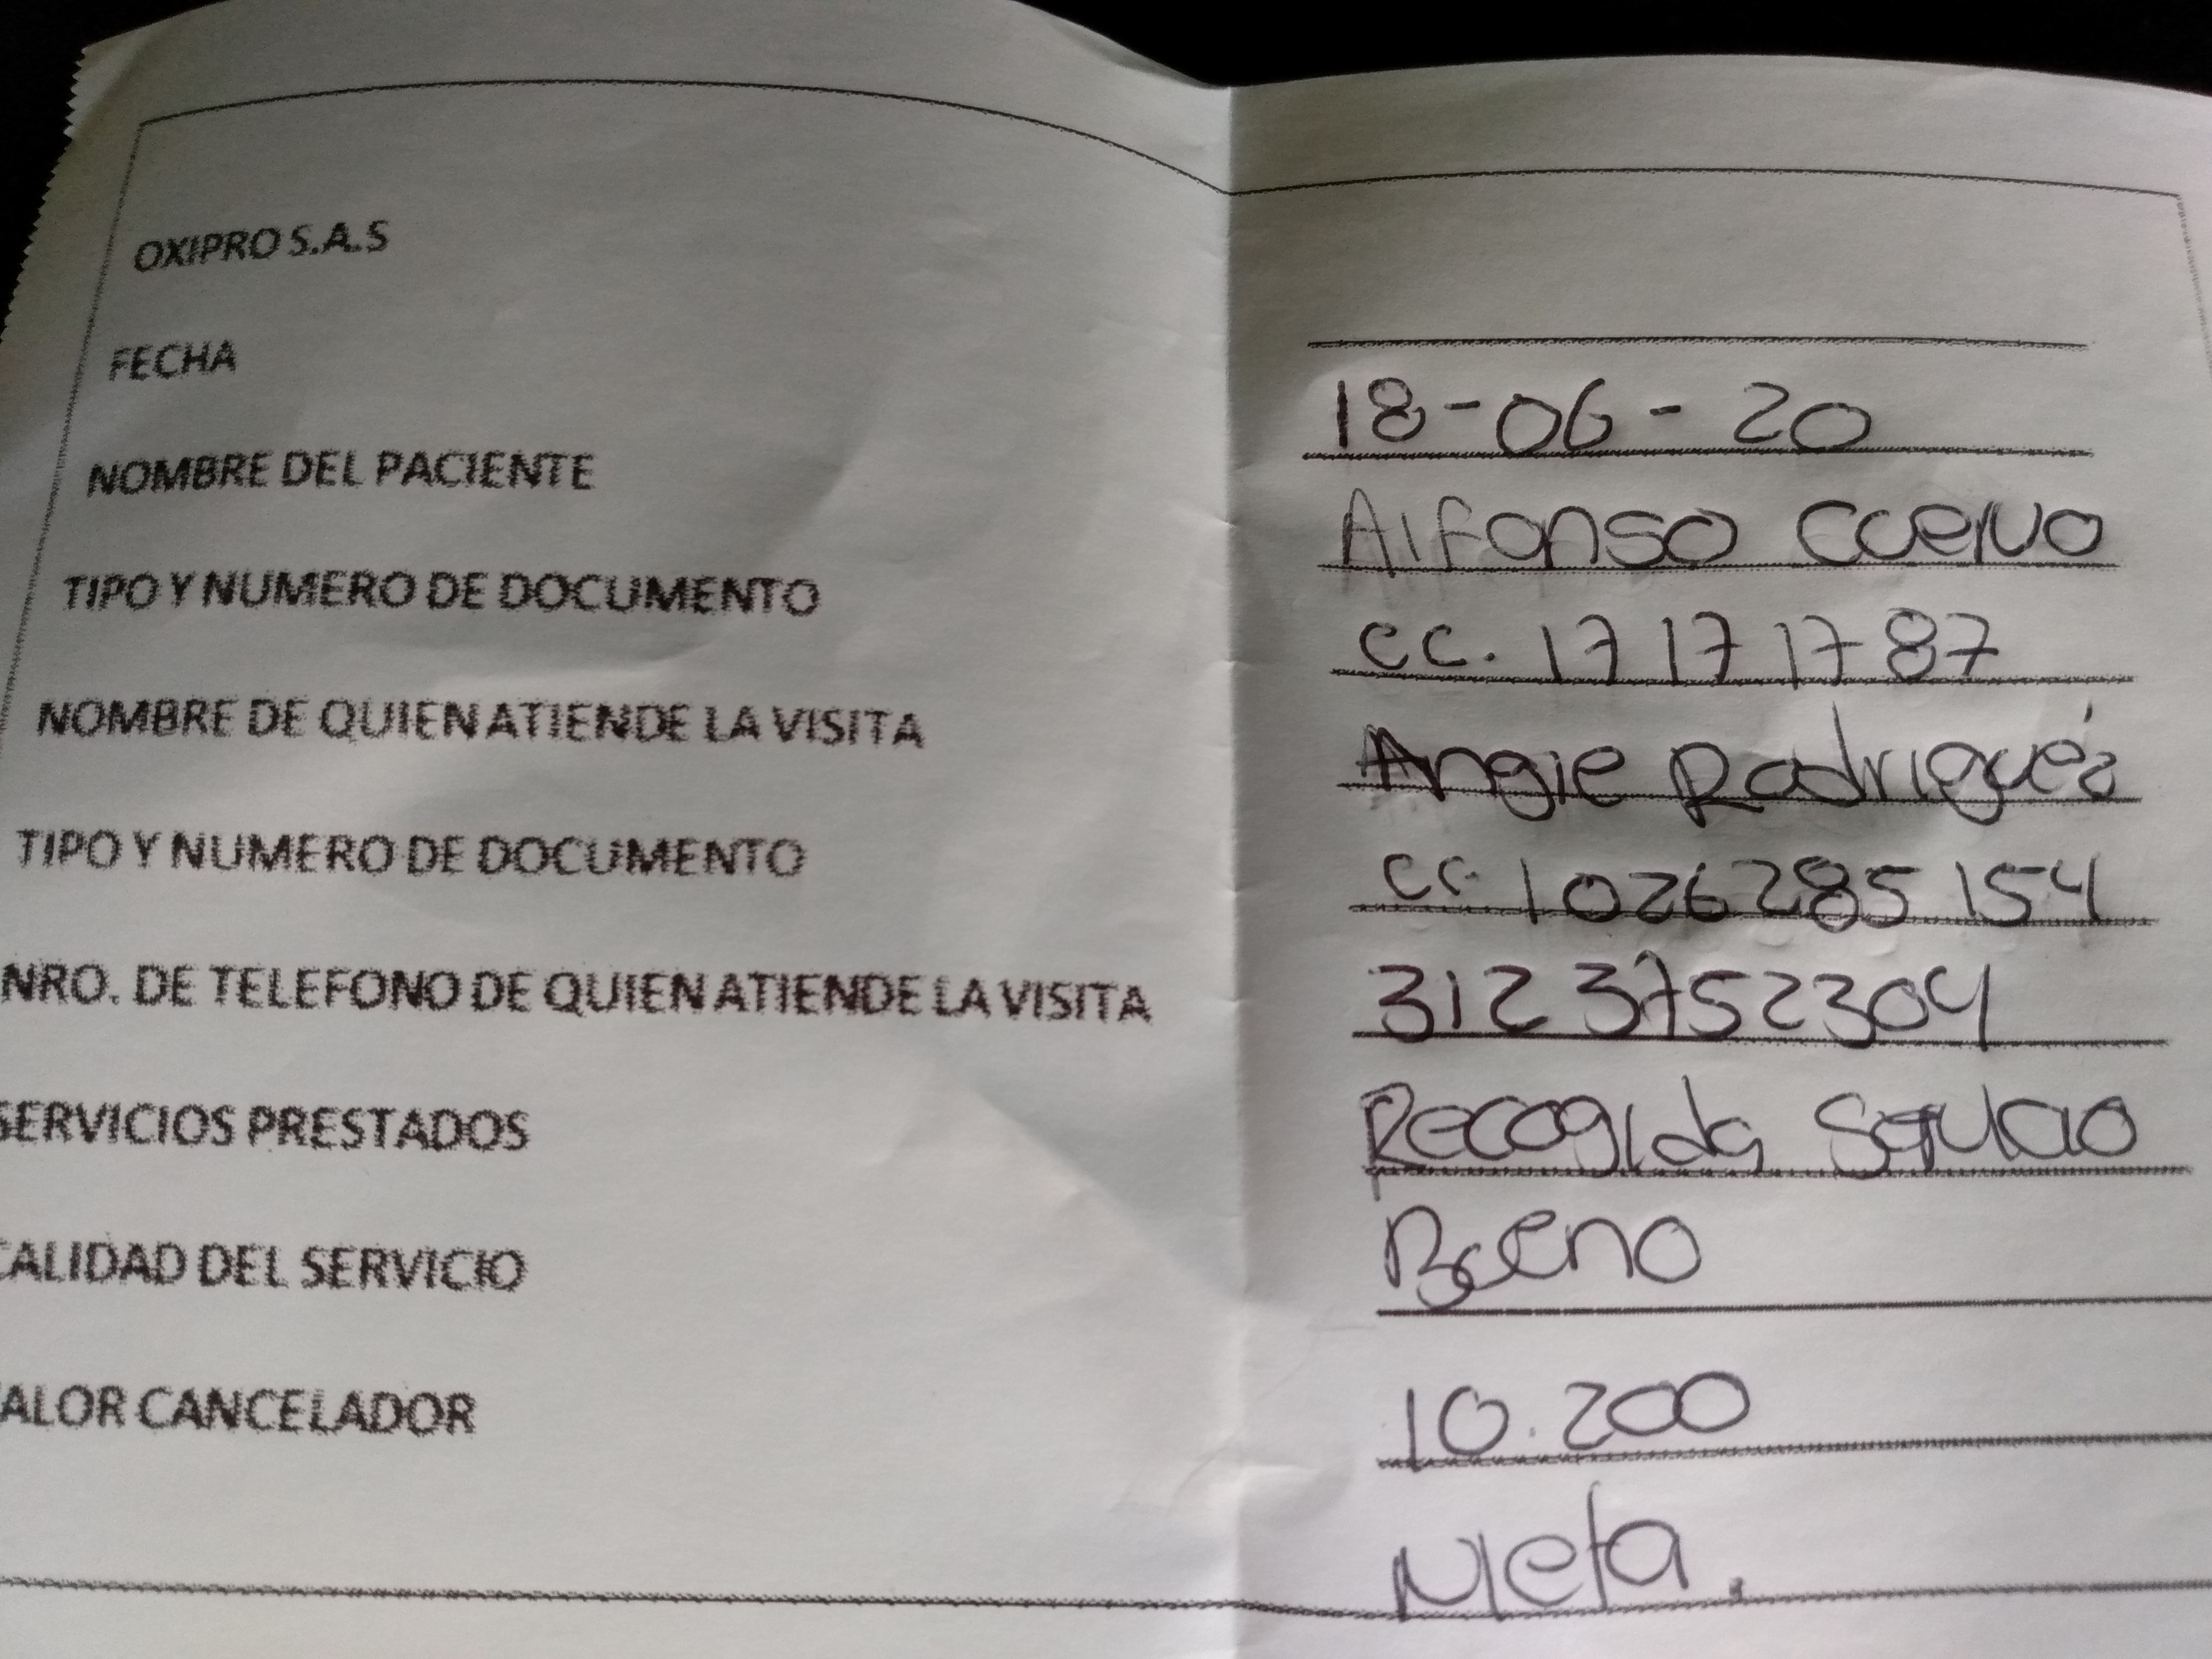 OXIPRO S.A.S
FECHA 18-06-20
NOMBRE DEL PACIENTE Alfonso Cuervo
TIPO Y NUMERO DE DOCUMENTO cc. 17171787
NOMBRE DE QUIEN ATIENDE LA VISITA Angie Rodrigués
TIPO Y NUMERO DE DOCUMENTO cc. 1026285154
NRO. DE TELEFONO DE QUIEN ATIENDE LA VISITA 3123752304
SERVICIOS PRESTADOS Recogida Servicio
CALIDAD DEL SERVICIO Bueno
ALOR CANCELADOR 10.200
Nieta.